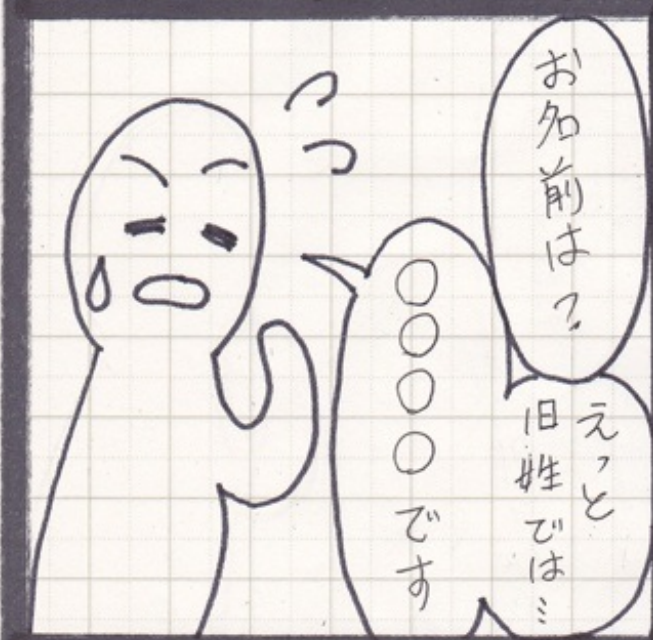 お名前は？
えっと
旧姓では…
○○○○です